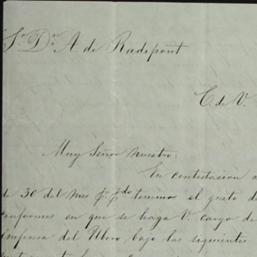 Sr. Dn. A de Radepont
C. de V.
Muy Señor nuestro:
En contestacion a
de 30 del mes p. pdo tenemos el gusto d
conformes en que se haga V. cargo de
impresa del Libro bajo las siguientes